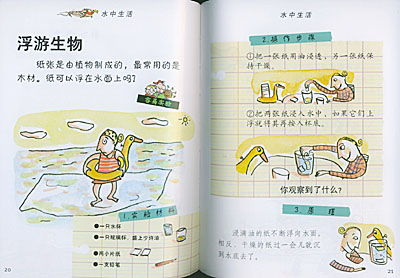 水中生活
浮游生物
纸张是由植物制成的，最常用的是
木材。纸可以浮在水面上吗？
容易实验
1.实验材料
●一只水杯
●一只玻璃杯，装上少许油
●两小片纸
●一支铅笔
20
水中生活
2.操作步骤
①把一张纸用油浸透，另一张纸保
持干燥。
②把两张纸浸入水中，如果它们上
浮就将其再按入杯底。
你观察到了什么？
3.原理
浸满油的纸不断浮向水面。
相反，干燥的纸过一会儿就沉
到水底去了。
21